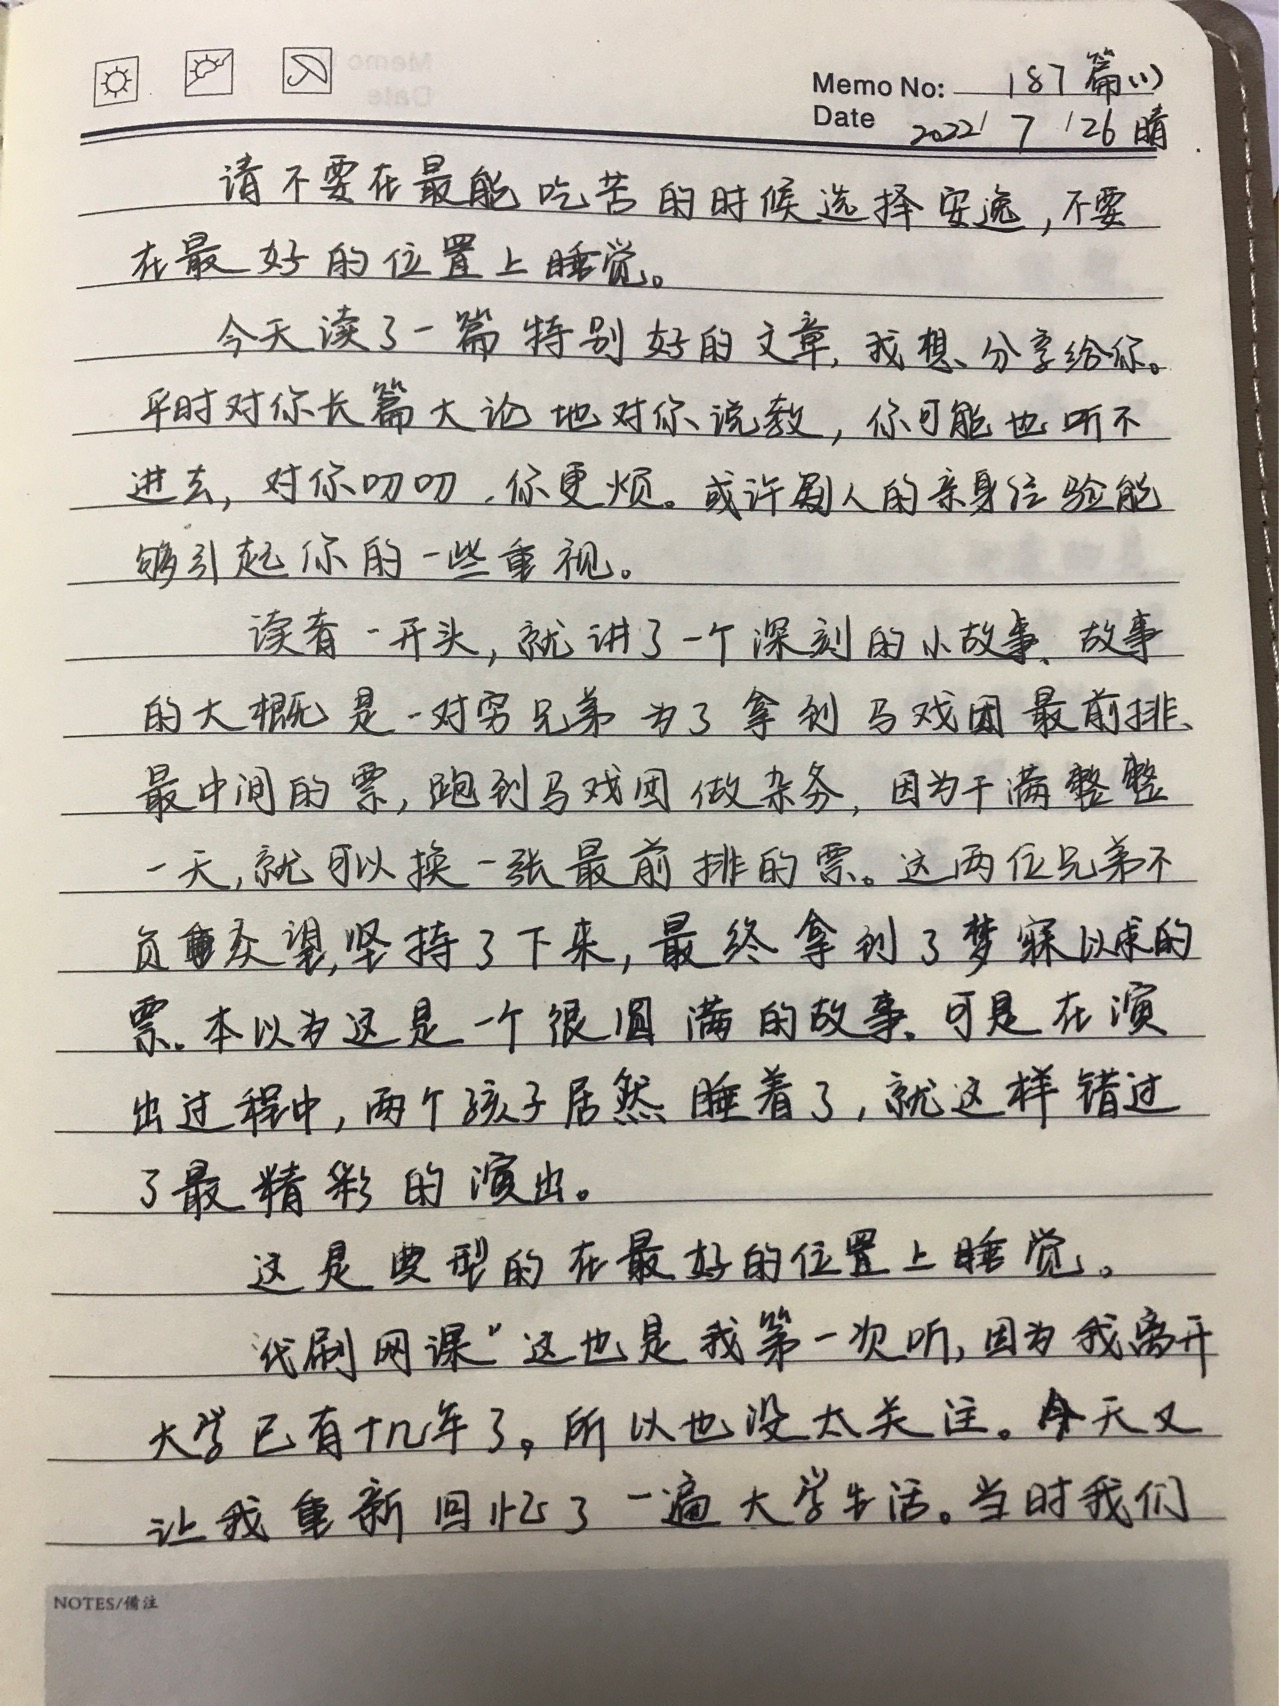 Memo No: 187篇(1)
Date 2022/7/26 晴
请不要在最能吃苦的时候选择安逸,不要
在最好的位置上睡觉。
今天读了一篇特别好的文章,我想分享给你。
平时对你长篇大论地对你说教,你可能也听不
进去,对你叨叨,你更烦。或许别人的亲身经验能
够引起你的一些重视。
读者一开头,就讲了一个深刻的小故事、故事
的大概是一对穷兄弟为了拿到马戏团最前排、
最中间的票,跑到马戏团做杂务,因为干满整整
一天,就可以换一张最前排的票。这两位兄弟不
负重望,坚持了下来,最终拿到了梦寐以求的
票。本以为这是一个很圆满的故事。可是在演
出过程中,两个孩子居然睡着了,就这样错过
了最精彩的演出。
这是典型的在最好的位置上睡觉。
“代刷网课”这也是我第一次听,因为我离开
大学已有十几年了。所以也没太关注。今天又
让我重新回忆了一遍大学生活。当时我们
NOTES/備注